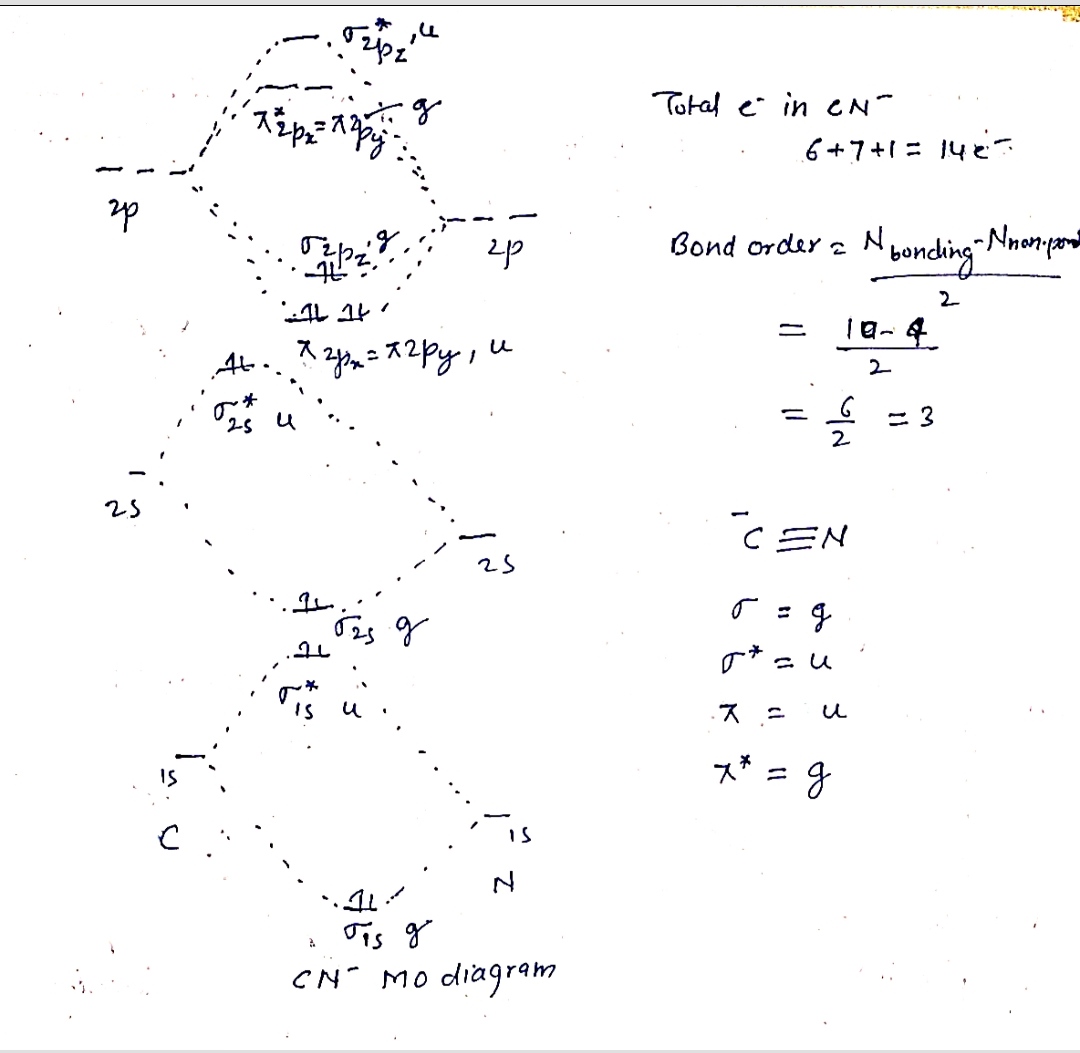 σ*2pz, u
π*2px = π*2py g
2p
σ2pz, g
2p
π2px = π2py, u
σ*2s u
2s
2s
σ2s g
σ*1s u
1s
C
1s
N
σ1s g
CN⁻ MO diagram
Total e⁻ in CN⁻
6+7+1 = 14e⁻
Bond order = Nbonding - Nnon-bond
2
= 10-4
2
= 6 = 3
2
⁻C≡N
σ = g
σ* = u
π = u
π* = g